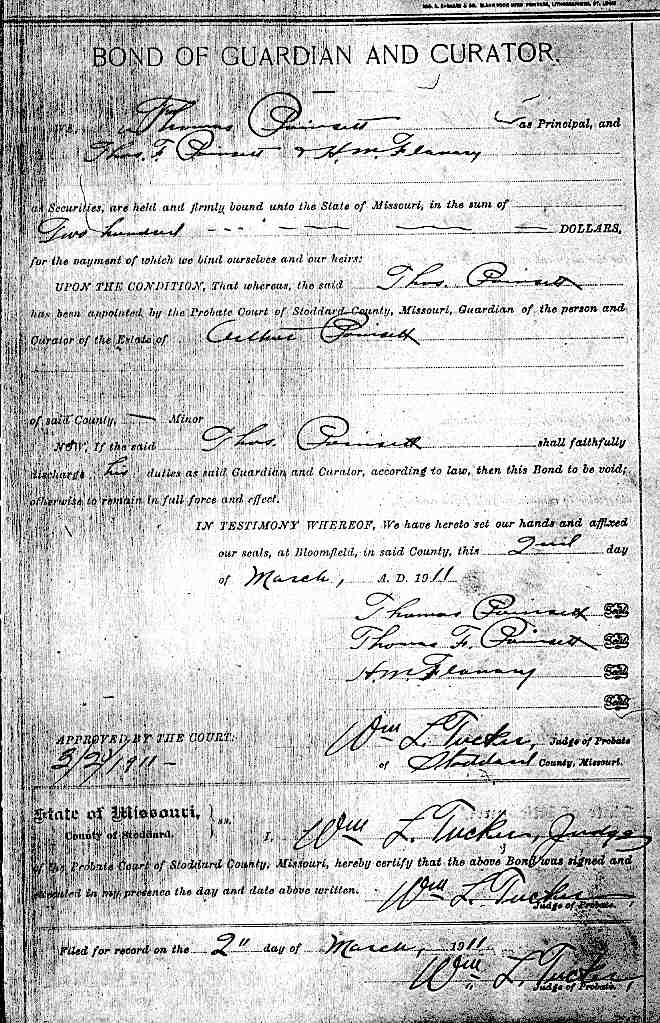 BOND OF GUARDIAN AND CURATOR.
WE, Thomas Poinsett as Principal, and
Thos. F Poinsett & H.M. Flanary
as Securities, are held and firmly bound unto the State of Missouri, in the sum of
Two hundred DOLLARS,
for the payment of which we bind ourselves and our heirs:
UPON THE CONDITION, That whereas, the said Thos. Poinsett
has been appointed by the Probate Court of Stoddard County, Missouri, Guardian of the person and
Curator of the Estate of Arthur Poinsett
of said County, — Minor
NOW, If the said Thos. Poinsett shall faithfully
discharge his duties as said Guardian and Curator, according to law, then this Bond to be void;
otherwise to remain in full force and effect.
IN TESTIMONY WHEREOF, We have hereto set our hands and affixed
our seals, at Bloomfield, in said County, this 2nd day
of March, A. D. 1911
Thomas Poinsett Seal
Thomas F. Poinsett Seal
H.M. Flanary Seal
Seal
APPROVED BY THE COURT: Wm L. Tucker, Judge of Probate
3/2/1911 - of Stoddard County, Missouri.
State of Missouri, } ss.
County of Stoddard. I, Wm L. Tucker, Judge
of the Probate Court of Stoddard County, Missouri, hereby certify that the above Bond was signed and
executed in my presence the day and date above written. Wm L. Tucker
Judge of Probate.
Filed for record on the 2" day of March, 1911
Wm L. Tucker,
Judge of Probate.